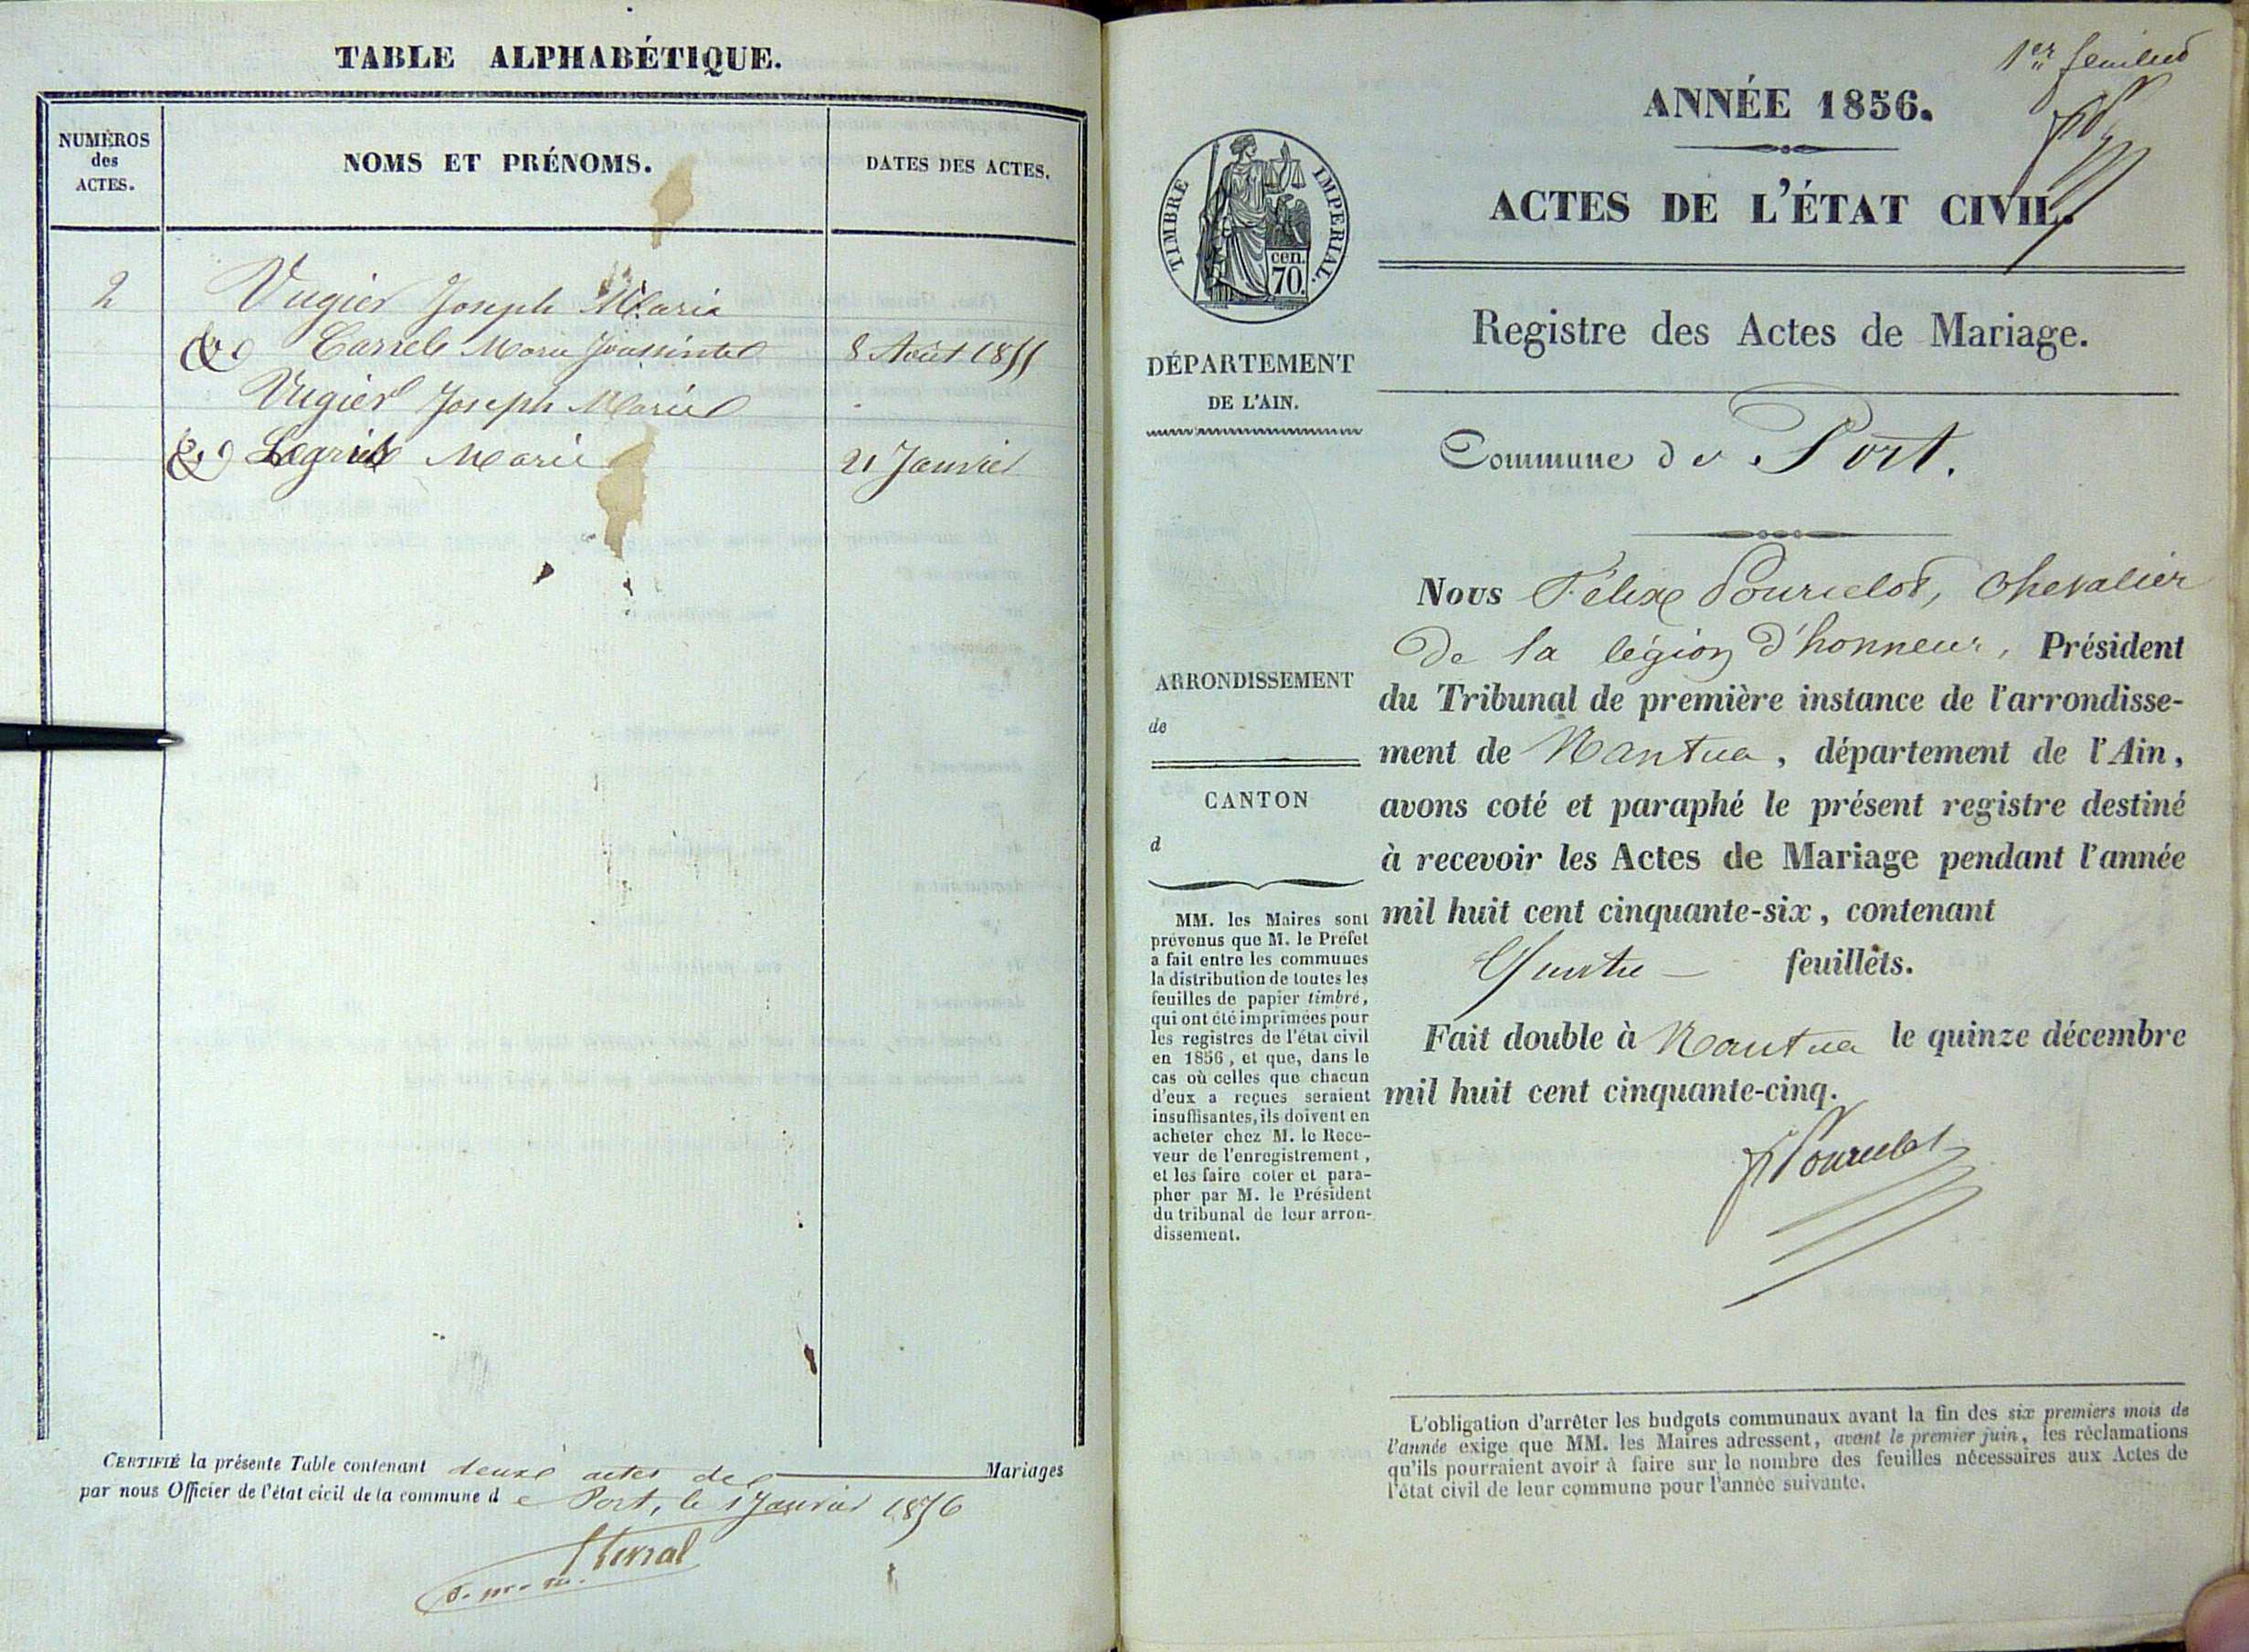 TABLE ALPHABÉTIQUE.
NUMÉROS
des
ACTES.
NOMS ET PRÉNOMS.
DATES DES ACTES.
2
Vugier Joseph Marie
& Marie 8 Août 1855
Vugier Joseph Marie
& Marie 21 Janvier
CERTIFIÉ la présente Table contenant deux actes de Mariages
par nous Officier de l'état civil de la commune de Port, le 1 Janvier 1856
1er feuillet
ANNÉE 1856.
ACTES DE L'ÉTAT CIVIL.
TIMBRE IMPERIAL.
cen.
70.
Registre des Actes de Mariage.
DÉPARTEMENT
DE L'AIN.
Commune de Port.
Nous Félix Pourcelot, chevalier
de la légion d'honneur, Président
du Tribunal de première instance de l'arrondisse-
ment de Nantua, département de l'Ain,
avons coté et paraphé le présent registre destiné
à recevoir les Actes de Mariage pendant l'année
mil huit cent cinquante-six, contenant
Quatre feuillets.
Fait double à Nantua le quinze décembre
mil huit cent cinquante-cinq.
F Pourcelot
ARRONDISSEMENT
de
CANTON
d
MM. les Maires sont
prévenus que M. le Préfet
a fait entre les communes
la distribution de toutes les
feuilles de papier timbré,
qui ont été imprimées pour
les registres de l'état civil
en 1856, et que, dans le
cas où celles que chacun
d'eux a reçues seraient
insuffisantes, ils doivent en
acheter chez M. le Rece-
veur de l'enregistrement,
et les faire coter et para-
pher par M. le Président
du tribunal de leur arron-
dissement.
L'obligation d'arrêter les budgets communaux avant la fin des six premiers mois de
l'année exige que MM. les Maires adressent, avant le premier juin, les réclamations
qu'ils pourraient avoir à faire sur le nombre des feuilles nécessaires aux Actes de
l'état civil de leur commune pour l'année suivante.